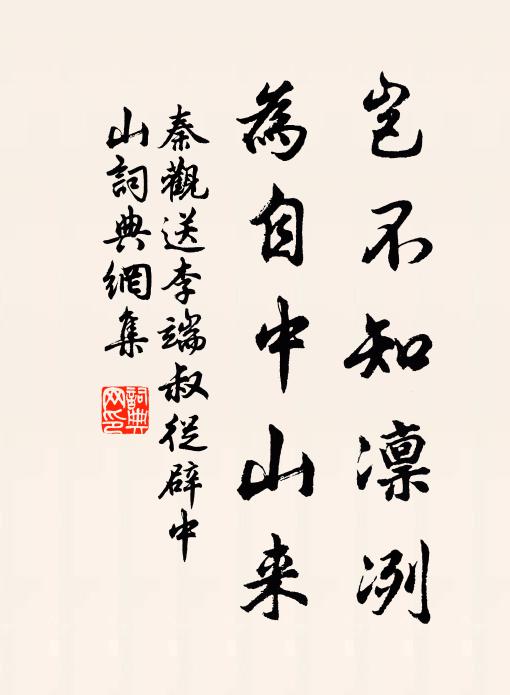 岂不知凛冽
為自中山来
秦觀送李端叔從辟中
山詞典網集
詞典
网印